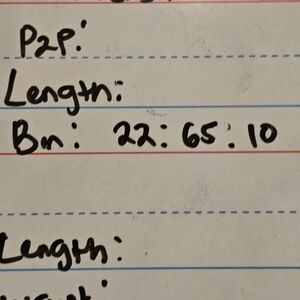 P2P:
Length:
Bin: 22: 65: 10
Length: